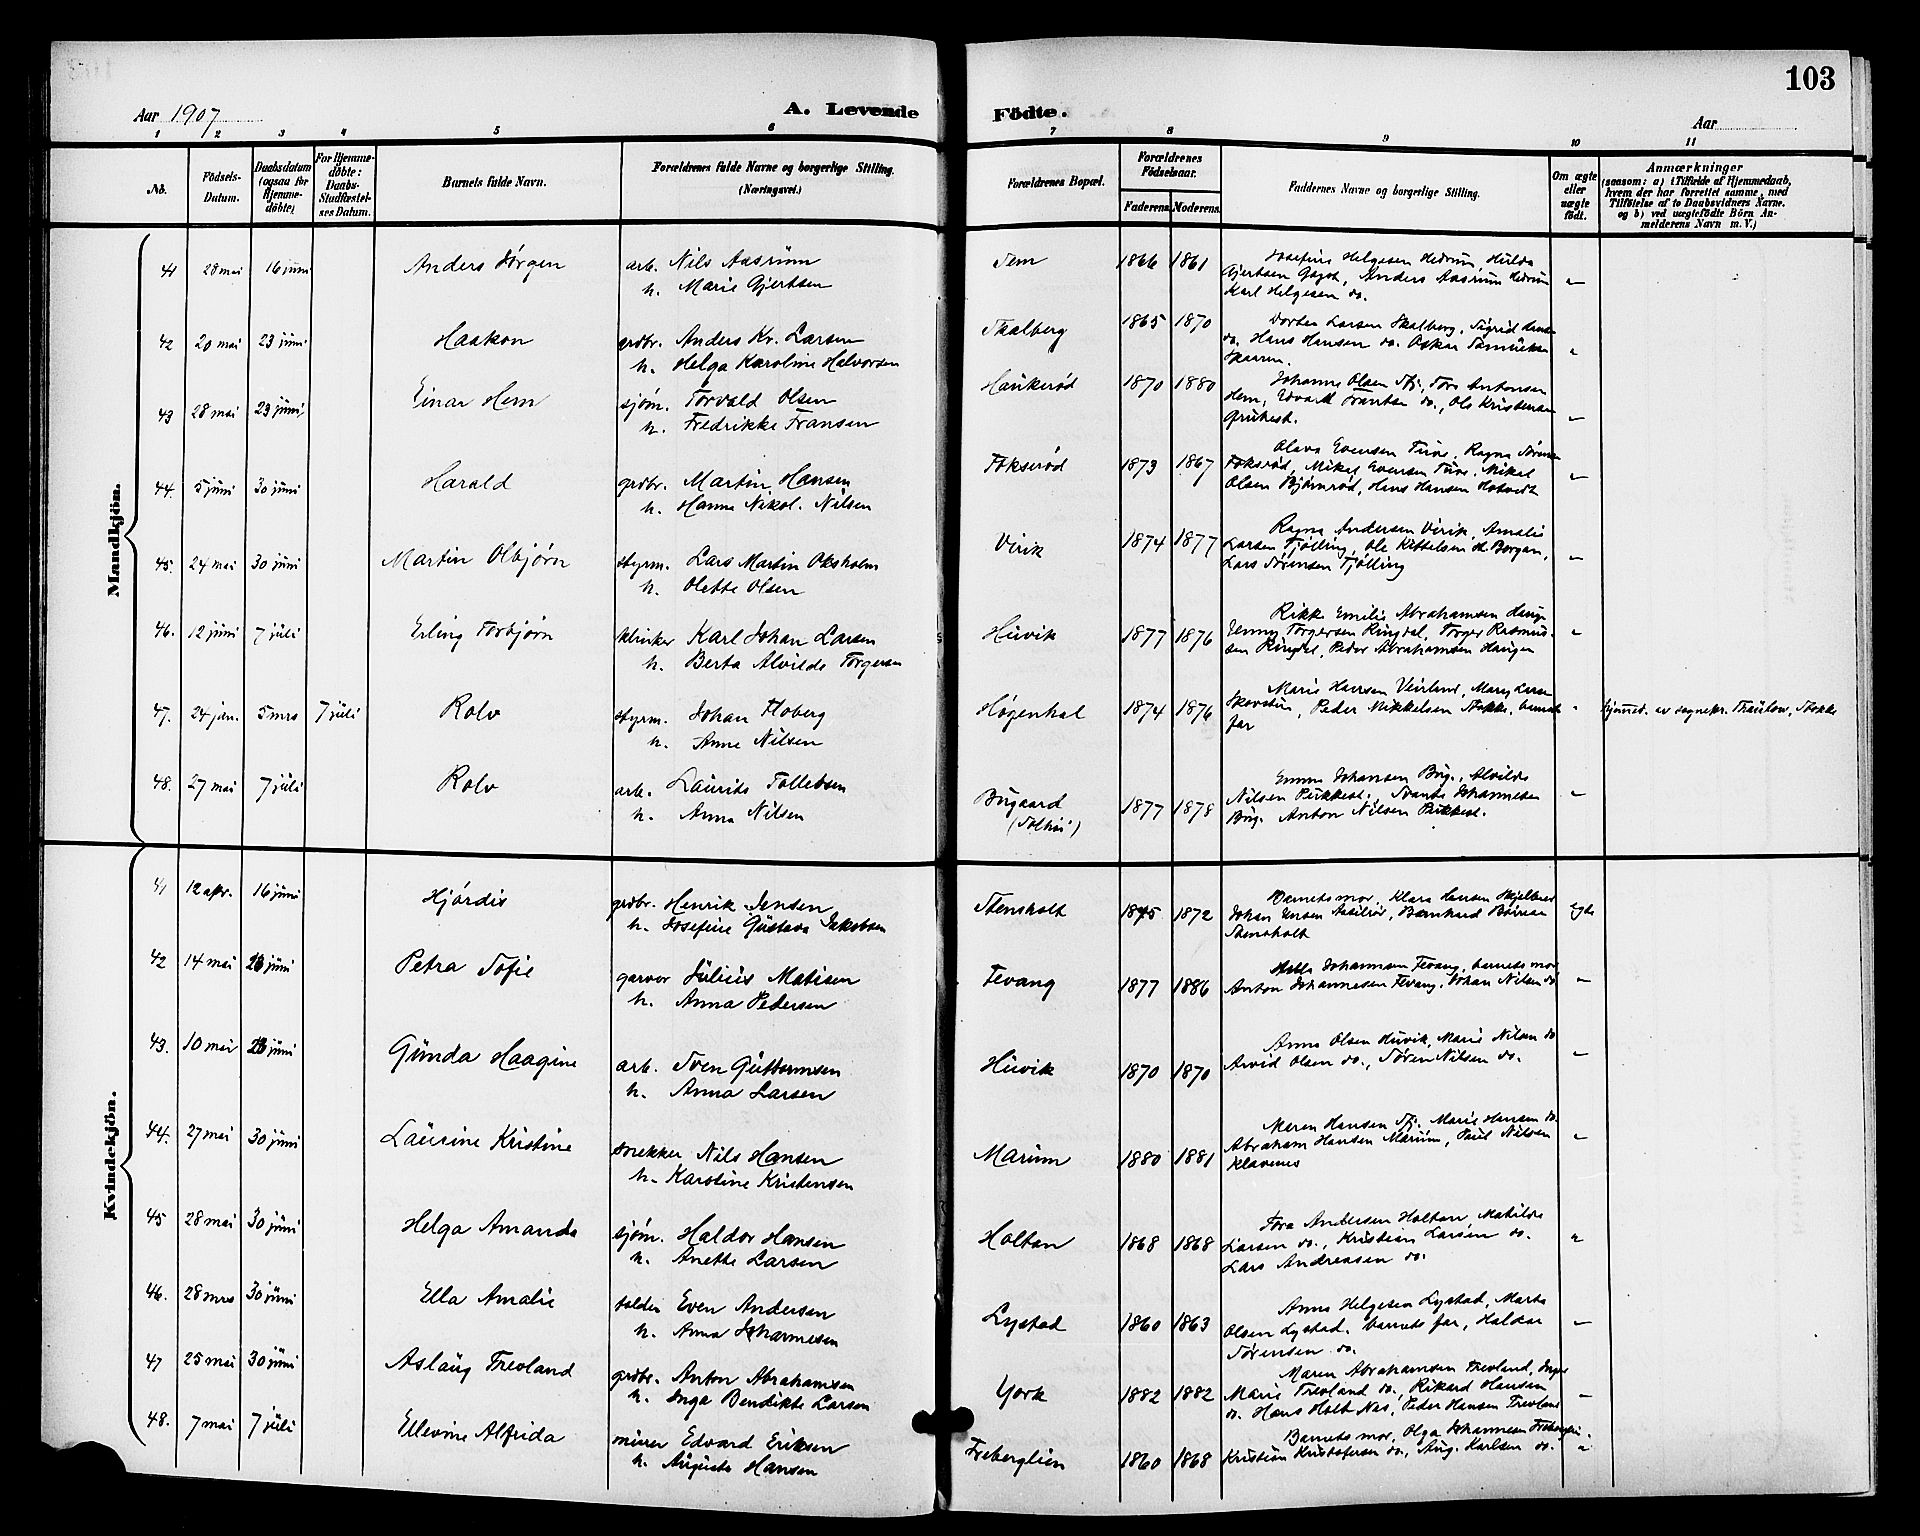 103
Aar 1907
A. Levende Födte.
Aar
1 2 3 4 5 6 7 8 9 10 11
No.
Födsels-Datum.
Daabsdatum (ogsaa for Hjemme-döbte)
For Hjemme-döbte: Daabs-Stadfæstel-ses Datum.
Barnets fulde Navn.
Forældrenes fulde Navne og borgerlige Stilling. (Næringsvei.)
Forældrenes Bopæl.
Forældrenes Födselsaar.
Faderens. Moderens.
Faddernes Navne og borgerlige Stilling.
Om ægte eller uægte födt.
Anmærkninger
(saasom: a) i Tilfælde af Hjemmedaab, hvem der har forrettet samme, med Tilföielse af to Daabsvidners Navne. og b) ved uægtefödte Börn An-melderens Navn m. V.)
Mandkjön.
41 28 mai 16 juni Anders Jørgen arb. Nils Aasrum Tem 1866 1861 Josefine Helgesen Hedrum, Hulda
h. Marie Gjertsen Gjertsen, Anders Aasrum Hedrum
Karl Helgesen do.
42 20 mai 23 juni Haakon grdbr. Anders Kr. Larsen Skalberg 1865 1870 Dorthea Larsen Skalberg, Sigrid
h. Helga Karoline Halvorsen do. Hans Hansen do. Oskar
43 28 mai 23 juni Einar Hem sjøm. Torvald Olsen Haukerød 1870 1880 Johanne Olsen Sfj., Tora Antonsen
h. Fredrikke Fransen Hem, Edvard Frantsen do., Ole Kristensen
44. 5 juni 30 juni Harald grdbr. Martin Hansen Fokserød 1873 1867 Olava Evensen, Ragna
h. Hanna Nikol. Nilsen Mikal Evensen, Mikal
Olsen Bjørnrød, Hans Hansen Hotvedt
45. 24 mai 30 juni Martin Olbjørn styrm. Lars Martin Oksholm Virik 1874 1877 Ragna Andersen Virik, Amalie
h. Olette Olsen Larsen Tjølling, Ole Kittelsen
Lars Sørensen Tjølling
46. 12 juni 7 juli Erling Torbjørn klinker Karl Johan Larsen Huvik 1877 1876 Rikke Emilie Abrahamsen
h. Berta Alvilde Torgersen Jenny Torgersen Ringdal, Torger Rasmus-
sen Ringdal, Peder Abrahamsen Haugen
47. 24 jan. 5 mrs 7 juli Rolv styrm. Johan Floberg Høgenhal 1874 1876 Marie Hansen, Mary Larsen
h. Anne Nilsen Peder Mikkelsen Stokke, barnets
far
hjemmed. av sognepr. Stokke
48. 27 mai 7 juli Rolv arb. Laurits Tollefsen Bugaard 1877 1878 Emma Johansen Bug., Alvilde
h. Anna Nilsen Nilsen Pukkest., Johannesen
Bug. Anton Nilsen Pukkest.
Kvindekjön.
41 12 apr. 16 juni Hjördis grdbr. Henrik Jensen Stensholt 1875 1872 Barnets mor, Klara Hansen ægte
h. Josefine Gustava Jakobsen Johan Jensen, Bernhard
Stensholt
42 14 mai 23 juni Petra Sofie garver Julius Matisen Fevang 1877 1886 Johannesen Fevang, barnets mor
h. Anna Pedersen Anton Johannesen Fevang, Johan Nilsen do
43. 10 mai 23 juni Gunda Haagine arb. Sven Guttormsen Huvik 1870 1870 Anna Olsen Huvik, Marie Nilsen do
h. Anna Larsen Arvid Olsen do., Søren Nilsen do.
44. 27 mai 30 juni Laurine Kristine snekker Nils Hansen Marum 1880 1881 Maren Hansen Sfj. Marie Hansen do.
h. Karoline Kristensen Abraham Hansen Marum, Paul Nilsen
Klavenes
45 28 mai 30 juni Helga Amanda sjøm. Haldor Hansen Holtan 1868 1868 Tora Andersen Holtan, Matilde
h. Anette Larsen Larsen do., Kristian Larsen do.
Lars Andreasen do.
46. 28 mrs 30 juni Ella Amalie Even Andersen Lystad 1860 1863 Anna Helgesen Lystad, Marta
h. Anna Johannesen Olsen Lystad. barnets far, Haldor
Sørensen do.
47 25 mai 30 juni Aslaug Frevland grdbr. Anton Abrahamsen York 1882 1882 Maren Abrahamsen Frevland, Inga
h. Inga Bendikte Larsen Marie Frevland do., Rikard Hansen
do. Hans Holt Nes, Peder Hansen Frevland
48. 7 mai 7 juli Ellevine Alfrida murer Edvard Eriksen Freberglien 1860 1868 Barnets mor, Olga Johannesen
h. Augusta Hansen Kristian Kristofersen do., Aug. Karlsen do.